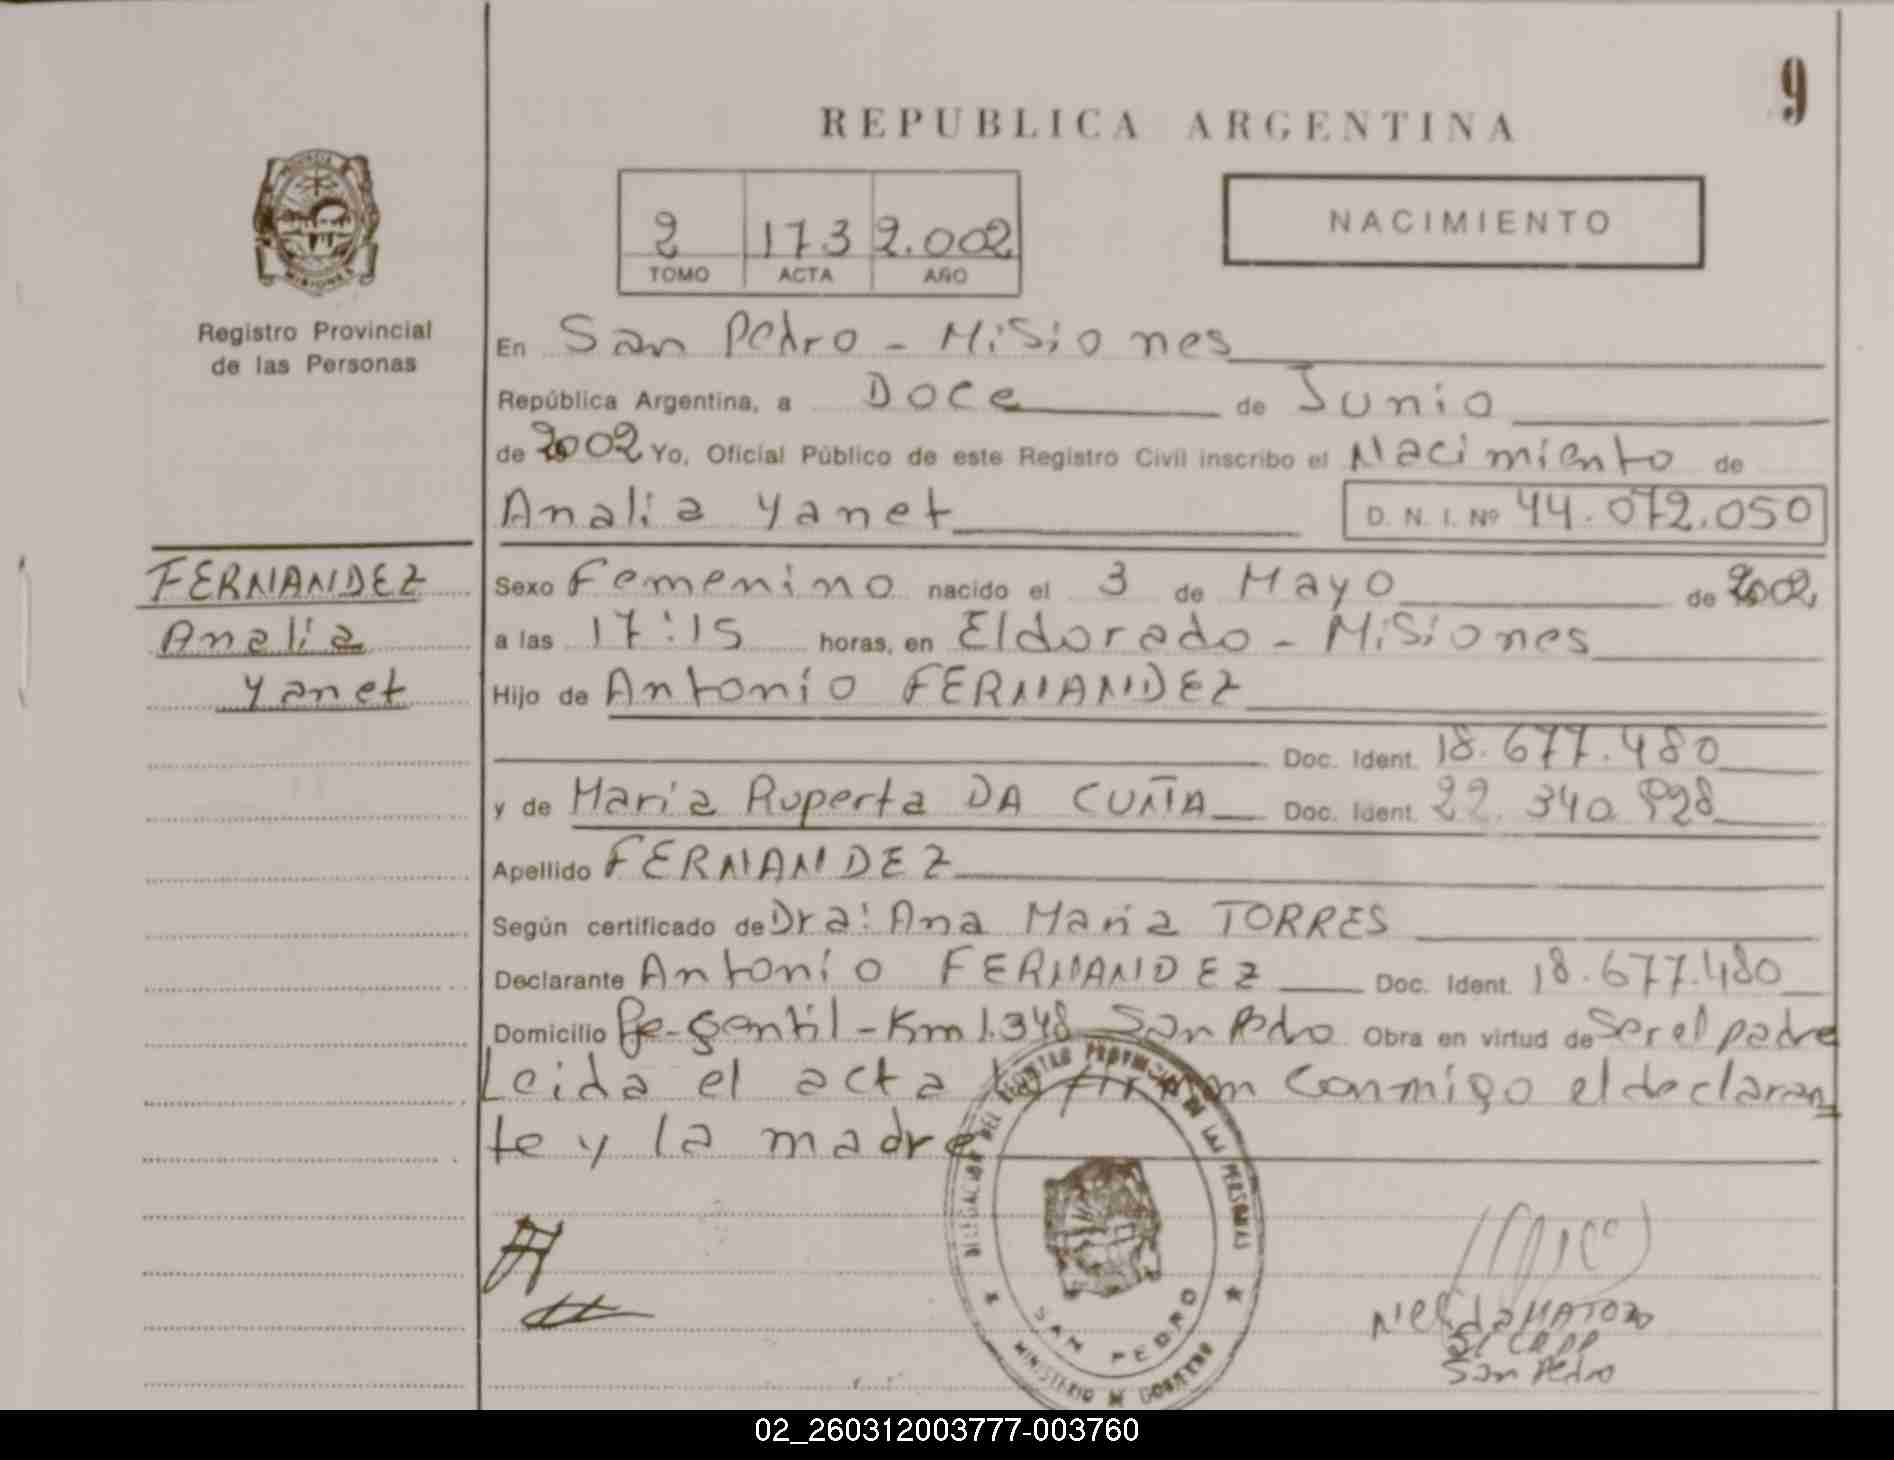 9
REPUBLICA ARGENTINA
2 173 2.002
TOMO ACTA AÑO
NACIMIENTO
MISIONES
Registro Provincial
de las Personas
En San Pedro - Misiones
República Argentina, a Doce de Junio
de 2002 Yo, Oficial Público de este Registro Civil inscribo el Nacimiento de
Analia Yanet D. N. I. Nº 44.072.050
FERNANDEZ
Analia
Yanet
Sexo Femenino nacido el 3 de Mayo de 2002
a las 17:15 horas, en Eldorado - Misiones
Hijo de Antonio FERNANDEZ
Doc. Ident. 18.677.480
y de Maria Ruperta DA CUÑA Doc. Ident. 22.340.928
Apellido FERNANDEZ
Según certificado de Dra: Ana Maria TORRES
Declarante Antonio FERNANDEZ Doc. Ident. 18.677.480
Domicilio Pje-Gentil-Km 1.348 San Pedro Obra en virtud de Ser el padre
Leida el acta la firman conmigo el declaran
te y la madre
DELEGACION DEL REGISTRO PROVINCIAL DE LAS PERSONAS
SAN PEDRO
MINISTERIO DE GOBIERNO
Nelida MATOZO
San Pedro
02_260312003777-003760